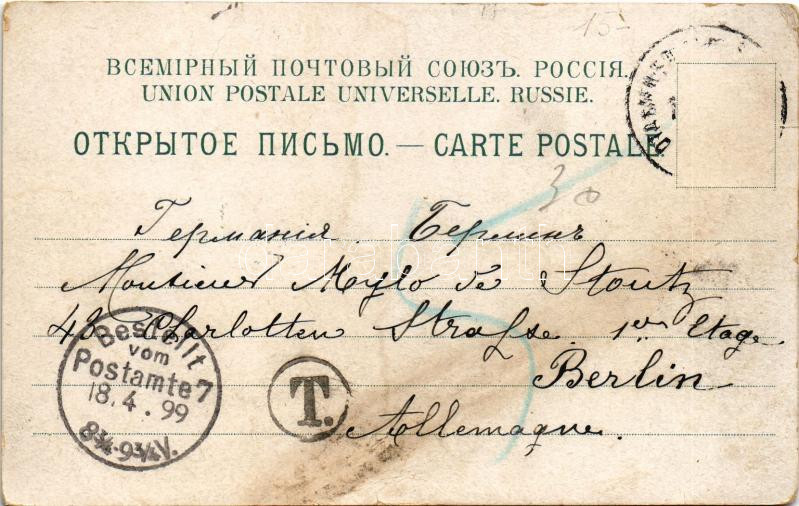 15-
ВСЕМІРНЫЙ ПОЧТОВЫЙ СОЮЗЪ. РОССІЯ.
UNION POSTALE UNIVERSELLE. RUSSIE.
ОТКРЫТОЕ ПИСЬМО. — CARTE POSTALE.
30
Германія. Берлинъ
Monsieur de Stoutz
43 Charlotten Strasse. 1er Etage.
Berlin
Allemagne.
Bestellt
vom
Postamte 7
18.4.99
8¾-9¾V.
T.